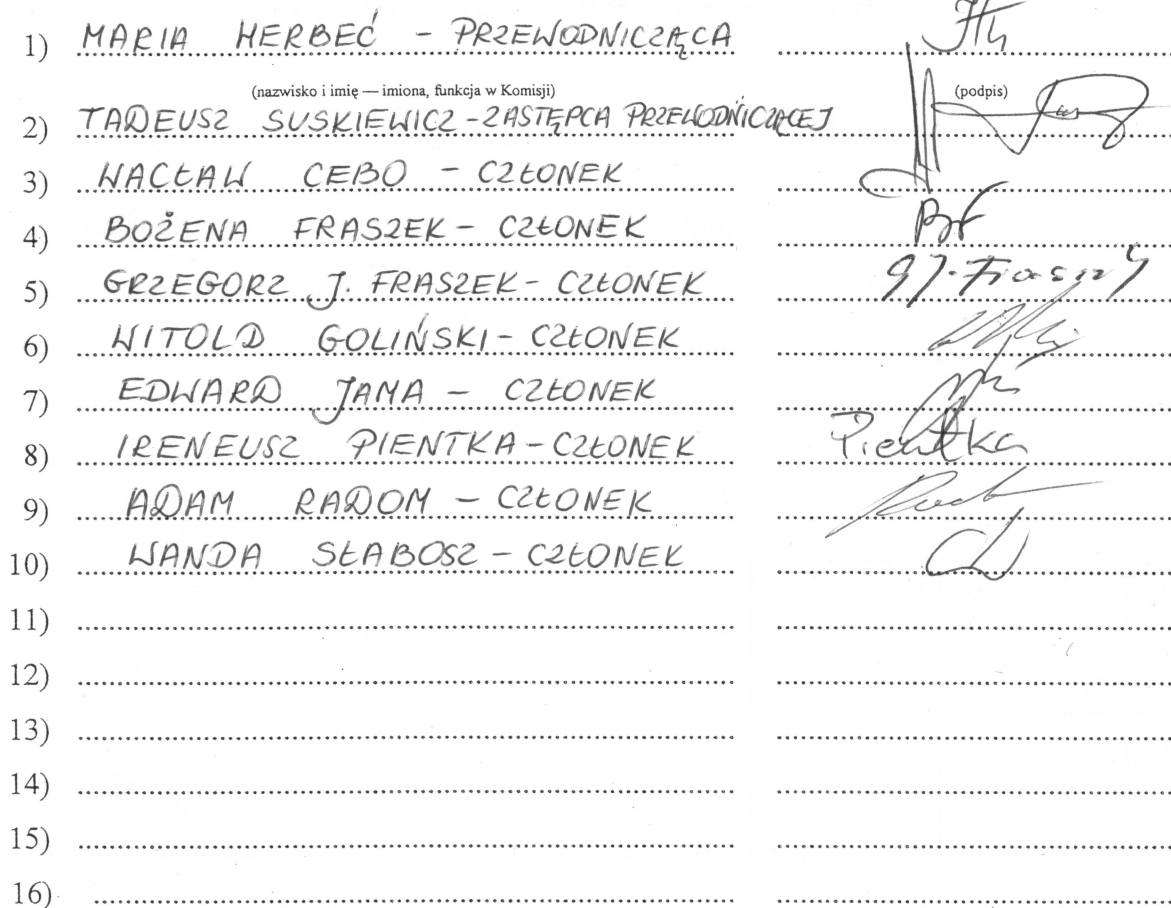 1) MARIA HERBEĆ - PRZEWODNICZĄCA
(nazwisko i imię — imiona, funkcja w Komisji) (podpis)
2) TADEUSZ SUSKIEWICZ - ZASTĘPCA PRZEWODNICZĄCEJ
3) WACŁAW CEBO - CZŁONEK
4) BOŻENA FRASZEK - CZŁONEK BF
5) GRZEGORZ J. FRASZEK - CZŁONEK
6) WITOLD GOLIŃSKI - CZŁONEK
7) EDWARD JAMA - CZŁONEK
8) IRENEUSZ PIENTKA - CZŁONEK Pientka
9) ADAM RADOM - CZŁONEK
10) WANDA SŁABOSZ - CZŁONEK
11)
12)
13)
14)
15)
16)